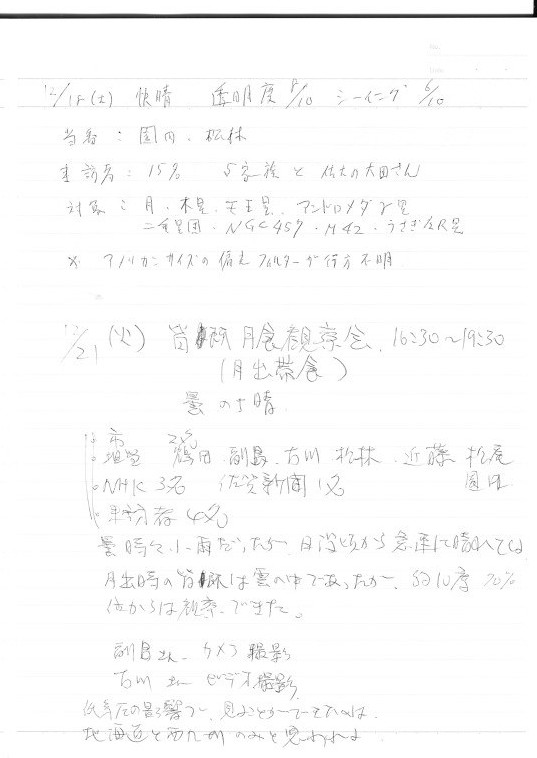 12/18(土) 快晴 透明度 8/10 シーイング 6/10
当番: 園内・松林
来訪者: 15名 5家族と佐大の太田さん
対象: 月・木星・天王星、アンドロメダγ星
二重星団・NGC457・M42・うさぎ座R星
※ アメリカンサイズの偏光フィルターが行方不明
12/21(火) 皆既月食観察会 16:30〜19:30
(月出帯食)
曇のち晴
・市 2名
・担当 鶴田 副島 古川 松林 近藤 松尾
園内
・NHK 3名 佐賀新聞 1名
・来訪者 4名
曇時々小雨だったが、日没頃から急速に晴れてくる
月出時の皆既は雲の中であったが、約10度 70%
位からは観察できた。
副島さん カメラ撮影
古川さん ビデオ撮影
低気圧の影響で、見ることができたのは
北海道と西九州のみと思われる